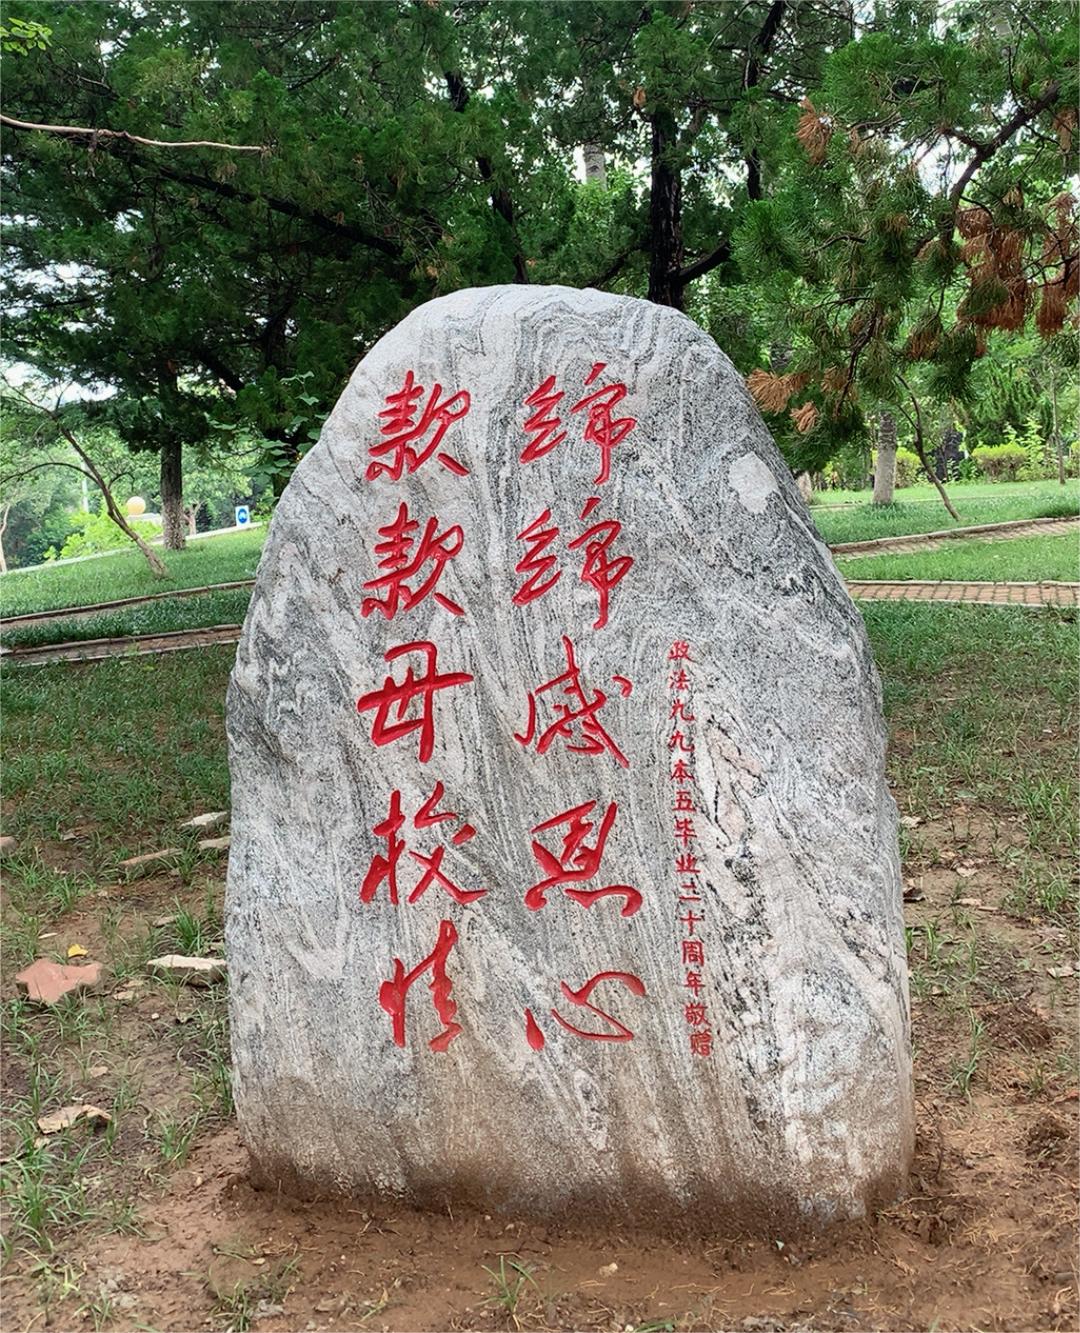 政法九九本五毕业二十周年敬赠
绵绵感恩心
款款母校情